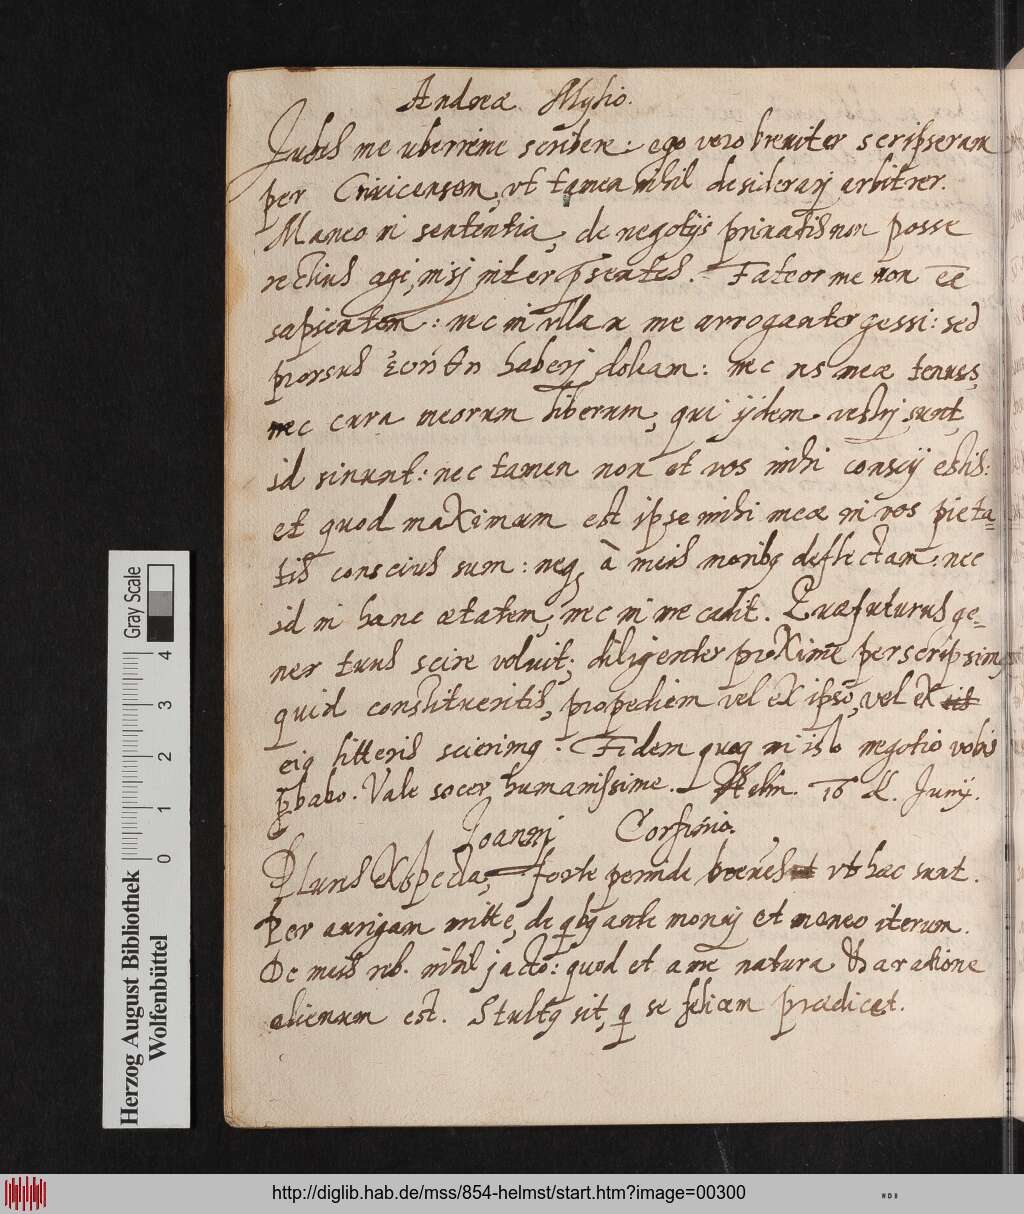 Andreæ Mylio.
Jubes me uberrime scribere: ego vero breviter scripseram
per Cnivicensem, vt tamen nihil desiderarj arbitrer.
Maneo in sententia, de negotijs privatis non posse
rectius agi, nisj inter psentes. Fateor me non ee
sapientem: nec in vlla re me arroganter gessi: sed
prorsus haberj doleam: nec res meæ tenues,
nec cura meorum liberum, qui ijdem vestrj sunt,
id sinunt: nec tamen non et vos mihi conscij estis:
et quod maximum est ipse mihi meæ in vos pieta=
tis conscius sum: neq à meis morib deflectam: nec
id in hanc ætatem, nec in me cadit. Quæ futurus ge=
ner tuus scire voluit; diligenter proxime perscripsim
quid constitueritis, propediem vel ex ipso, vel ex
eig litteris scierimg. Fidem quoq in isto negotio vobis
pbabo. Vale socer humanissime. Helm. 16 Junij.
Joannj Corfinio.
Plures expecta, forte perinde breves vt hæc sunt.
Per aurigam mitte, de qbg ante monuj et moneo iterum.
De meis reb. nihil jacto: quod et a me natura et a ratione
alienum est. Stultg sit, q se felicem prædicet.
Gray Scale
0 1 2 3 4
Herzog August Bibliothek
Wolfenbüttel
http://diglib.hab.de/mss/854-helmst/start.htm?image=00300